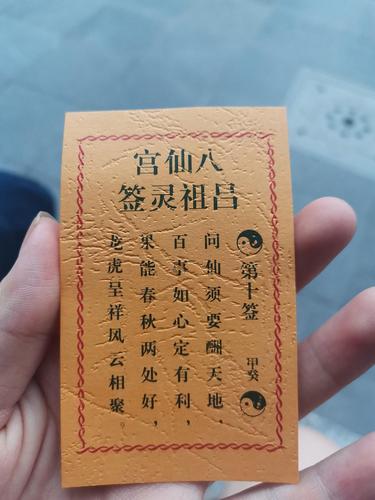 八仙宫
吕祖灵签
第十签 甲癸
问仙须要酬天地，
百事如心定有利，
果能春秋两处好，
龙虎呈祥风云相聚。